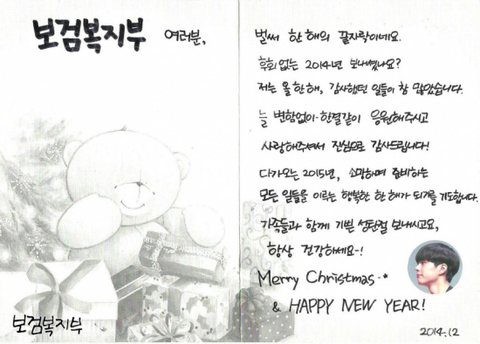 보검복지부 여러분,
벌써 한 해의 끝자락이네요.
후회 없는 2014년 보내셨나요?
저는 올 한해, 감사했던 일들이 참 많았습니다.
늘 변함없이 한결같이 응원해주시고
사랑해주셔서 진심으로 감사드립니다!
다가오는 2015년, 소망하며 준비하는
모든 일들을 이루는 행복한 한 해가 되기를 기도합니다.
가족들과 함께 기쁜 성탄절 보내시고요,
항상 건강하세요~!
Merry Christmas..*
& HAPPY NEW YEAR!
2014.12
보검복지부